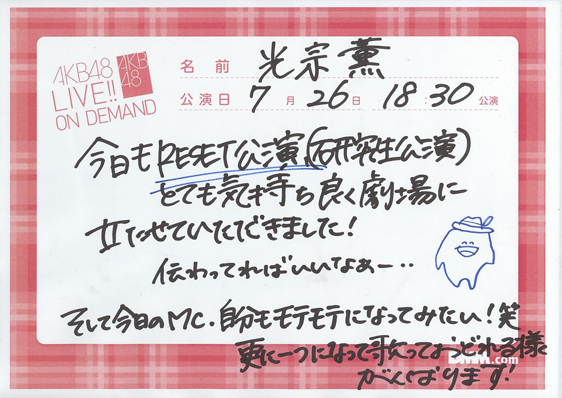 AKB48
LIVE!!
ON DEMAND
AKB
48
名前 光宗薫
公演日 7月26日 18:30公演
今日もRESET公演(研究生公演)
とても気持ち良く劇場に
立たせていただきました!
伝わってればいいなぁー..
そして今日のMC.自分もモテモテになってみたい!笑
更に一つになって歌っておどれる様
がんばります!
.com